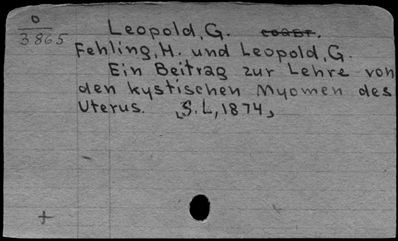 O
3865
Leopold, G.
Fehling, H. und Leopold, G.
Ein Beitrag zur Lehre von
den kystischen Myomen des
Uterus. [S. L, 1874]
+